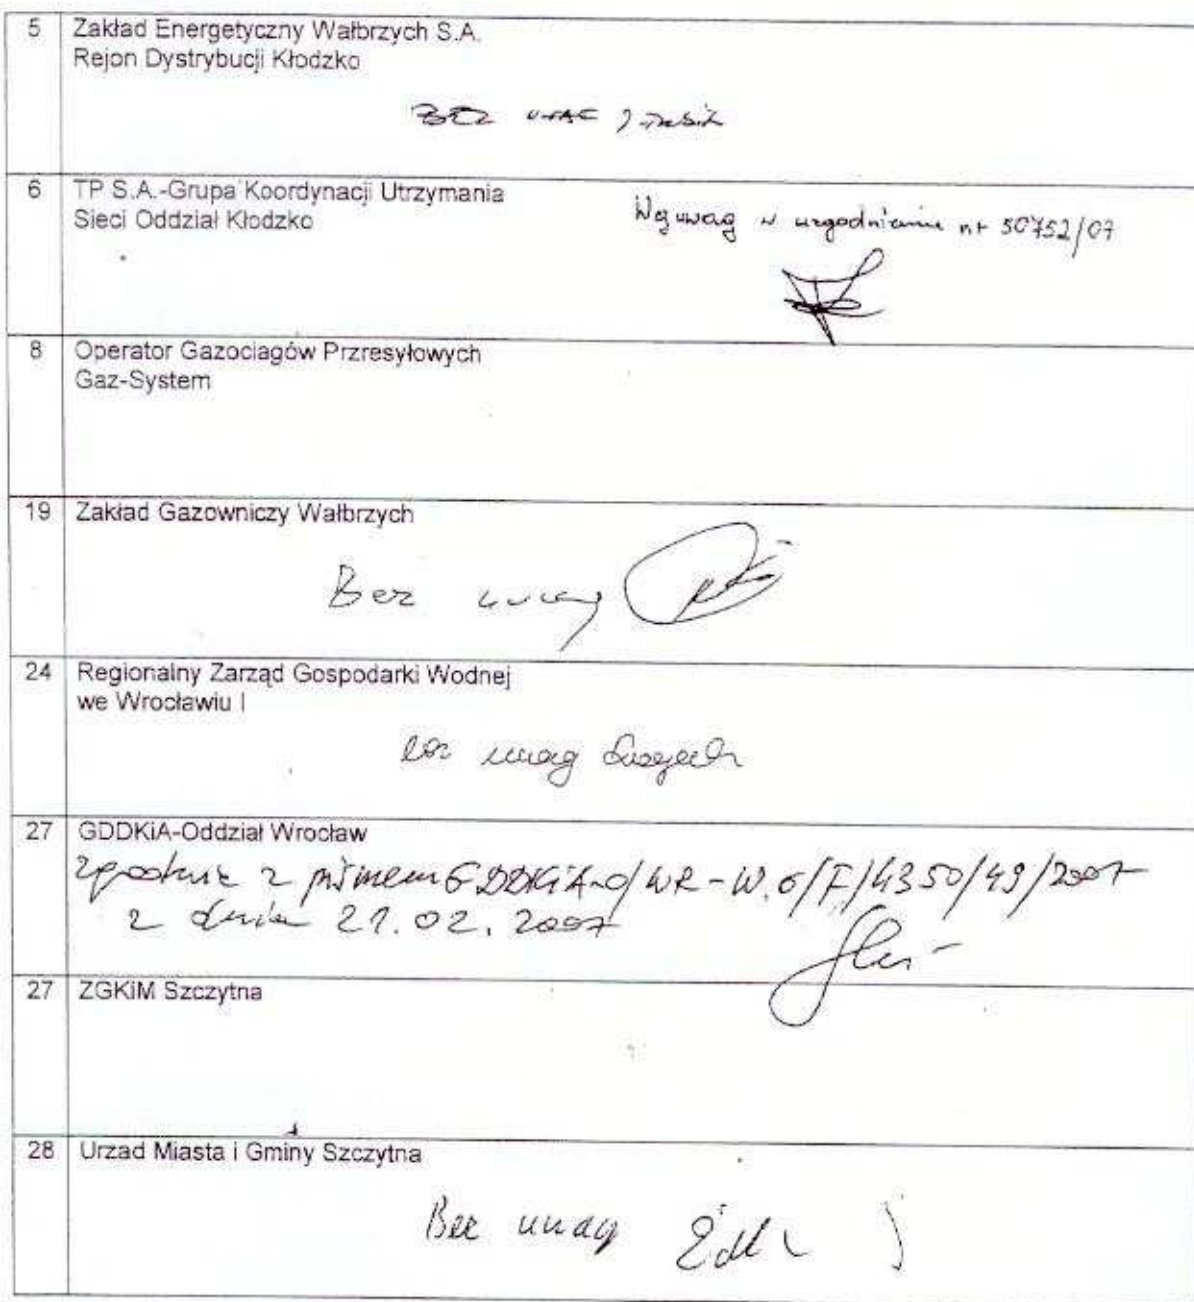 5 Zakład Energetyczny Wałbrzych S.A.
Rejon Dystrybucji Kłodzko
BEZ UWAG
6 TP S.A.-Grupa Koordynacji Utrzymania
Sieci Oddział Kłodzko
Wg uwag w uzgodnieniu nr 50752/07
8 Operator Gazociagów Przresyłowych
Gaz-System
19 Zakład Gazowniczy Wałbrzych
Bez uwag
24 Regionalny Zarząd Gospodarki Wodnej
we Wrocławiu I
bez uwag
27 GDDKiA-Oddział Wrocław
zgodnie z pismem GDDKiA-O/WR-W.6/F/4350/49/2007
z dnia 21.02.2007
27 ZGKiM Szczytna
28 Urzad Miasta i Gminy Szczytna
Bez uwag